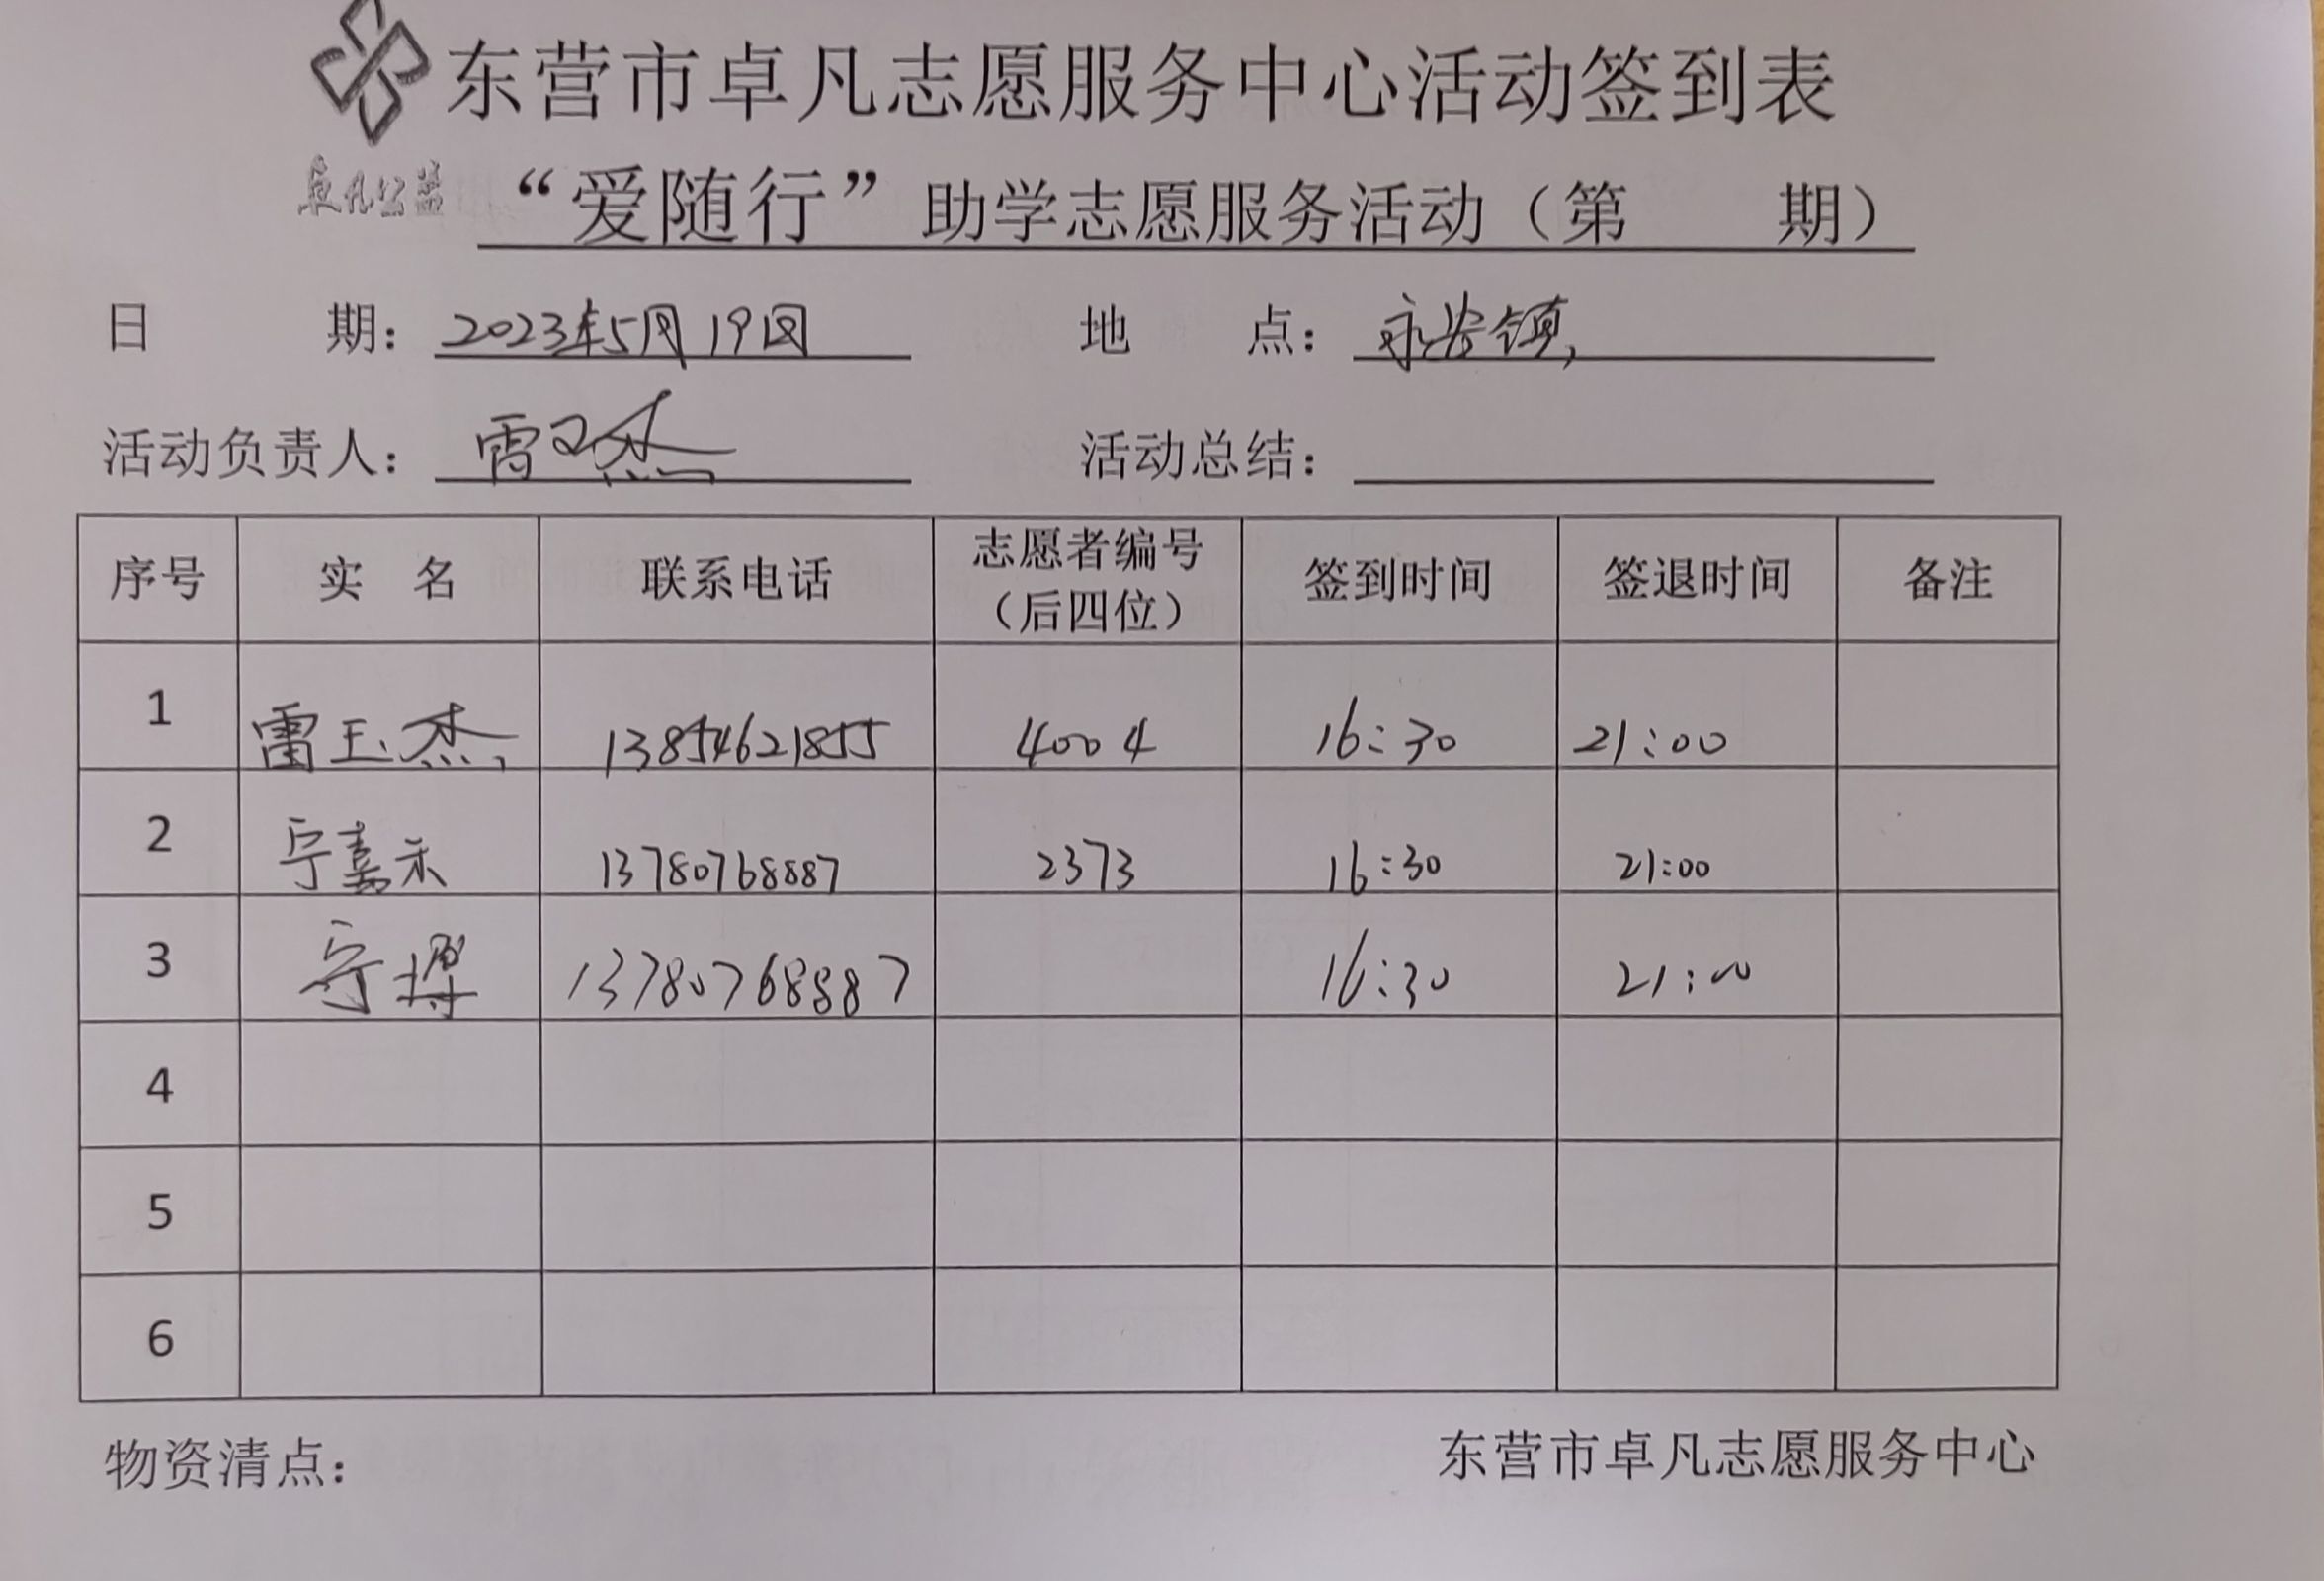 东营市卓凡志愿服务中心活动签到表
卓凡公益
“爱随行”助学志愿服务活动（第 期）
日 期：2023年5月19日 地 点：永安镇
活动负责人：雷玉杰 活动总结：
序号 实 名 联系电话 志愿者编号（后四位） 签到时间 签退时间 备注
1 雷玉杰 13854621855 4004 16:30 21:00
2 宁嘉禾 13780768887 2373 16:30 21:00
3 宁 13780768887 16:30 21:00
4
5
6
物资清点： 东营市卓凡志愿服务中心